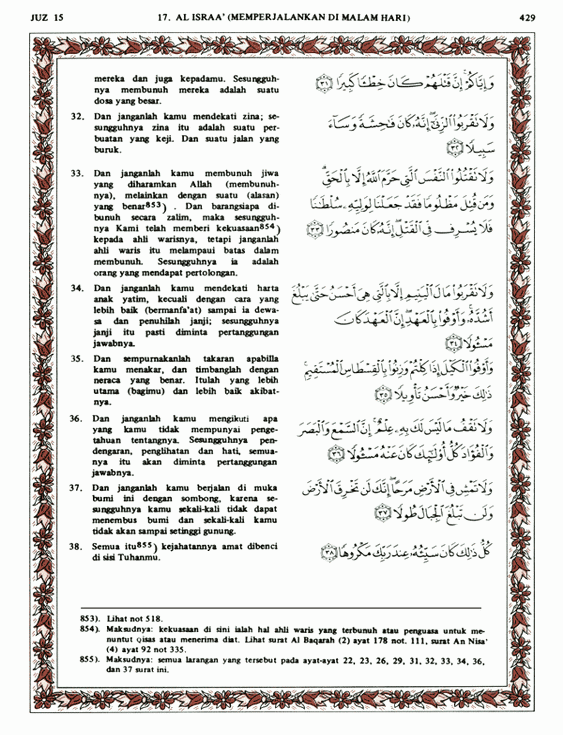 JUZ 15 17. AL ISRAA' (MEMPERJALANKAN DI MALAM HARI) 429
mereka dan juga kepadamu. Sesungguh-
nya membunuh mereka adalah suatu
dosa yang besar.
وَإِيَّاكُمْ إِنَّ قَتْلَهُمْ كَانَ خِطْـًٔا كَبِيرًا ﴿٣١﴾
32. Dan janganlah kamu mendekati zina; se-
sungguhnya zina itu adalah suatu per-
buatan yang keji. Dan suatu jalan yang
buruk.
وَلَا تَقْرَبُوا الزِّنَىٰ إِنَّهُ كَانَ فَاحِشَةً وَسَاءَ
سَبِيلًا ﴿٣٢﴾
33. Dan janganlah kamu membunuh jiwa
yang diharamkan Allah (membunuh-
nya), melainkan dengan suatu (alasan)
yang benar853) . Dan barangsiapa di-
bunuh secara zalim, maka sesungguh-
nya Kami telah memberi kekuasaan854)
kepada ahli warisnya, tetapi janganlah
ahli waris itu melampaui batas dalam
membunuh. Sesungguhnya ia adalah
orang yang mendapat pertolongan.
وَلَا تَقْتُلُوا النَّفْسَ الَّتِي حَرَّمَ اللَّهُ إِلَّا بِالْحَقِّ
وَمَن قُتِلَ مَظْلُومًا فَقَدْ جَعَلْنَا لِوَلِيِّهِ سُلْطَانًا
فَلَا يُسْرِف فِّي الْقَتْلِ إِنَّهُ كَانَ مَنصُورًا ﴿٣٣﴾
34. Dan janganlah kamu mendekati harta
anak yatim, kecuali dengan cara yang
lebih baik (bermanfa'at) sampai ia dewa-
sa dan penuhilah janji; sesungguhnya
janji itu pasti diminta pertanggungan
jawabnya.
وَلَا تَقْرَبُوا مَالَ الْيَتِيمِ إِلَّا بِالَّتِي هِيَ أَحْسَنُ حَتَّىٰ يَبْلُغَ
أَشُدَّهُ وَأَوْفُوا بِالْعَهْدِ إِنَّ الْعَهْدَ كَانَ
مَسْـُٔولًا ﴿٣٤﴾
35. Dan sempurnakanlah takaran apabila
kamu menakar, dan timbanglah dengan
neraca yang benar. Itulah yang lebih
utama (bagimu) dan lebih baik akibat-
nya.
وَأَوْفُوا الْكَيْلَ إِذَا كِلْتُمْ وَزِنُوا بِالْقِسْطَاسِ الْمُسْتَقِيمِ
ذَٰلِكَ خَيْرٌ وَأَحْسَنُ تَأْوِيلًا ﴿٣٥﴾
36. Dan janganlah kamu mengikuti apa
yang kamu tidak mempunyai penge-
tahuan tentangnya. Sesungguhnya pen-
dengaran, penglihatan dan hati, semua-
nya itu akan diminta pertanggungan
jawabnya.
وَلَا تَقْفُ مَا لَيْسَ لَكَ بِهِ عِلْمٌ إِنَّ السَّمْعَ وَالْبَصَرَ
وَالْفُؤَادَ كُلُّ أُولَٰئِكَ كَانَ عَنْهُ مَسْـُٔولًا ﴿٣٦﴾
37. Dan janganlah kamu berjalan di muka
bumi ini dengan sombong, karena se-
sungguhnya kamu sekali-kali tidak dapat
menembus bumi dan sekali-kali kamu
tidak akan sampai setinggi gunung.
وَلَا تَمْشِ فِي الْأَرْضِ مَرَحًا إِنَّكَ لَن تَخْرِقَ الْأَرْضَ
وَلَن تَبْلُغَ الْجِبَالَ طُولًا ﴿٣٧﴾
38. Semua itu855) kejahatannya amat dibenci
di sisi Tuhanmu.
كُلُّ ذَٰلِكَ كَانَ سَيِّئُهُ عِندَ رَبِّكَ مَكْرُوهًا ﴿٣٨﴾
853). Lihat not 518.
854). Maksudnya: kekuasaan di sini ialah hal ahli waris yang terbunuh atau penguasa untuk me-
nuntut qisas atau menerima diat. Lihat surat Al Baqarah (2) ayat 178 not. 111, surat An Nisa'
(4) ayat 92 not 335.
855). Maksudnya: semua larangan yang tersebut pada ayat-ayat 22, 23, 26, 29, 31, 32, 33, 34, 36,
dan 37 surat ini.